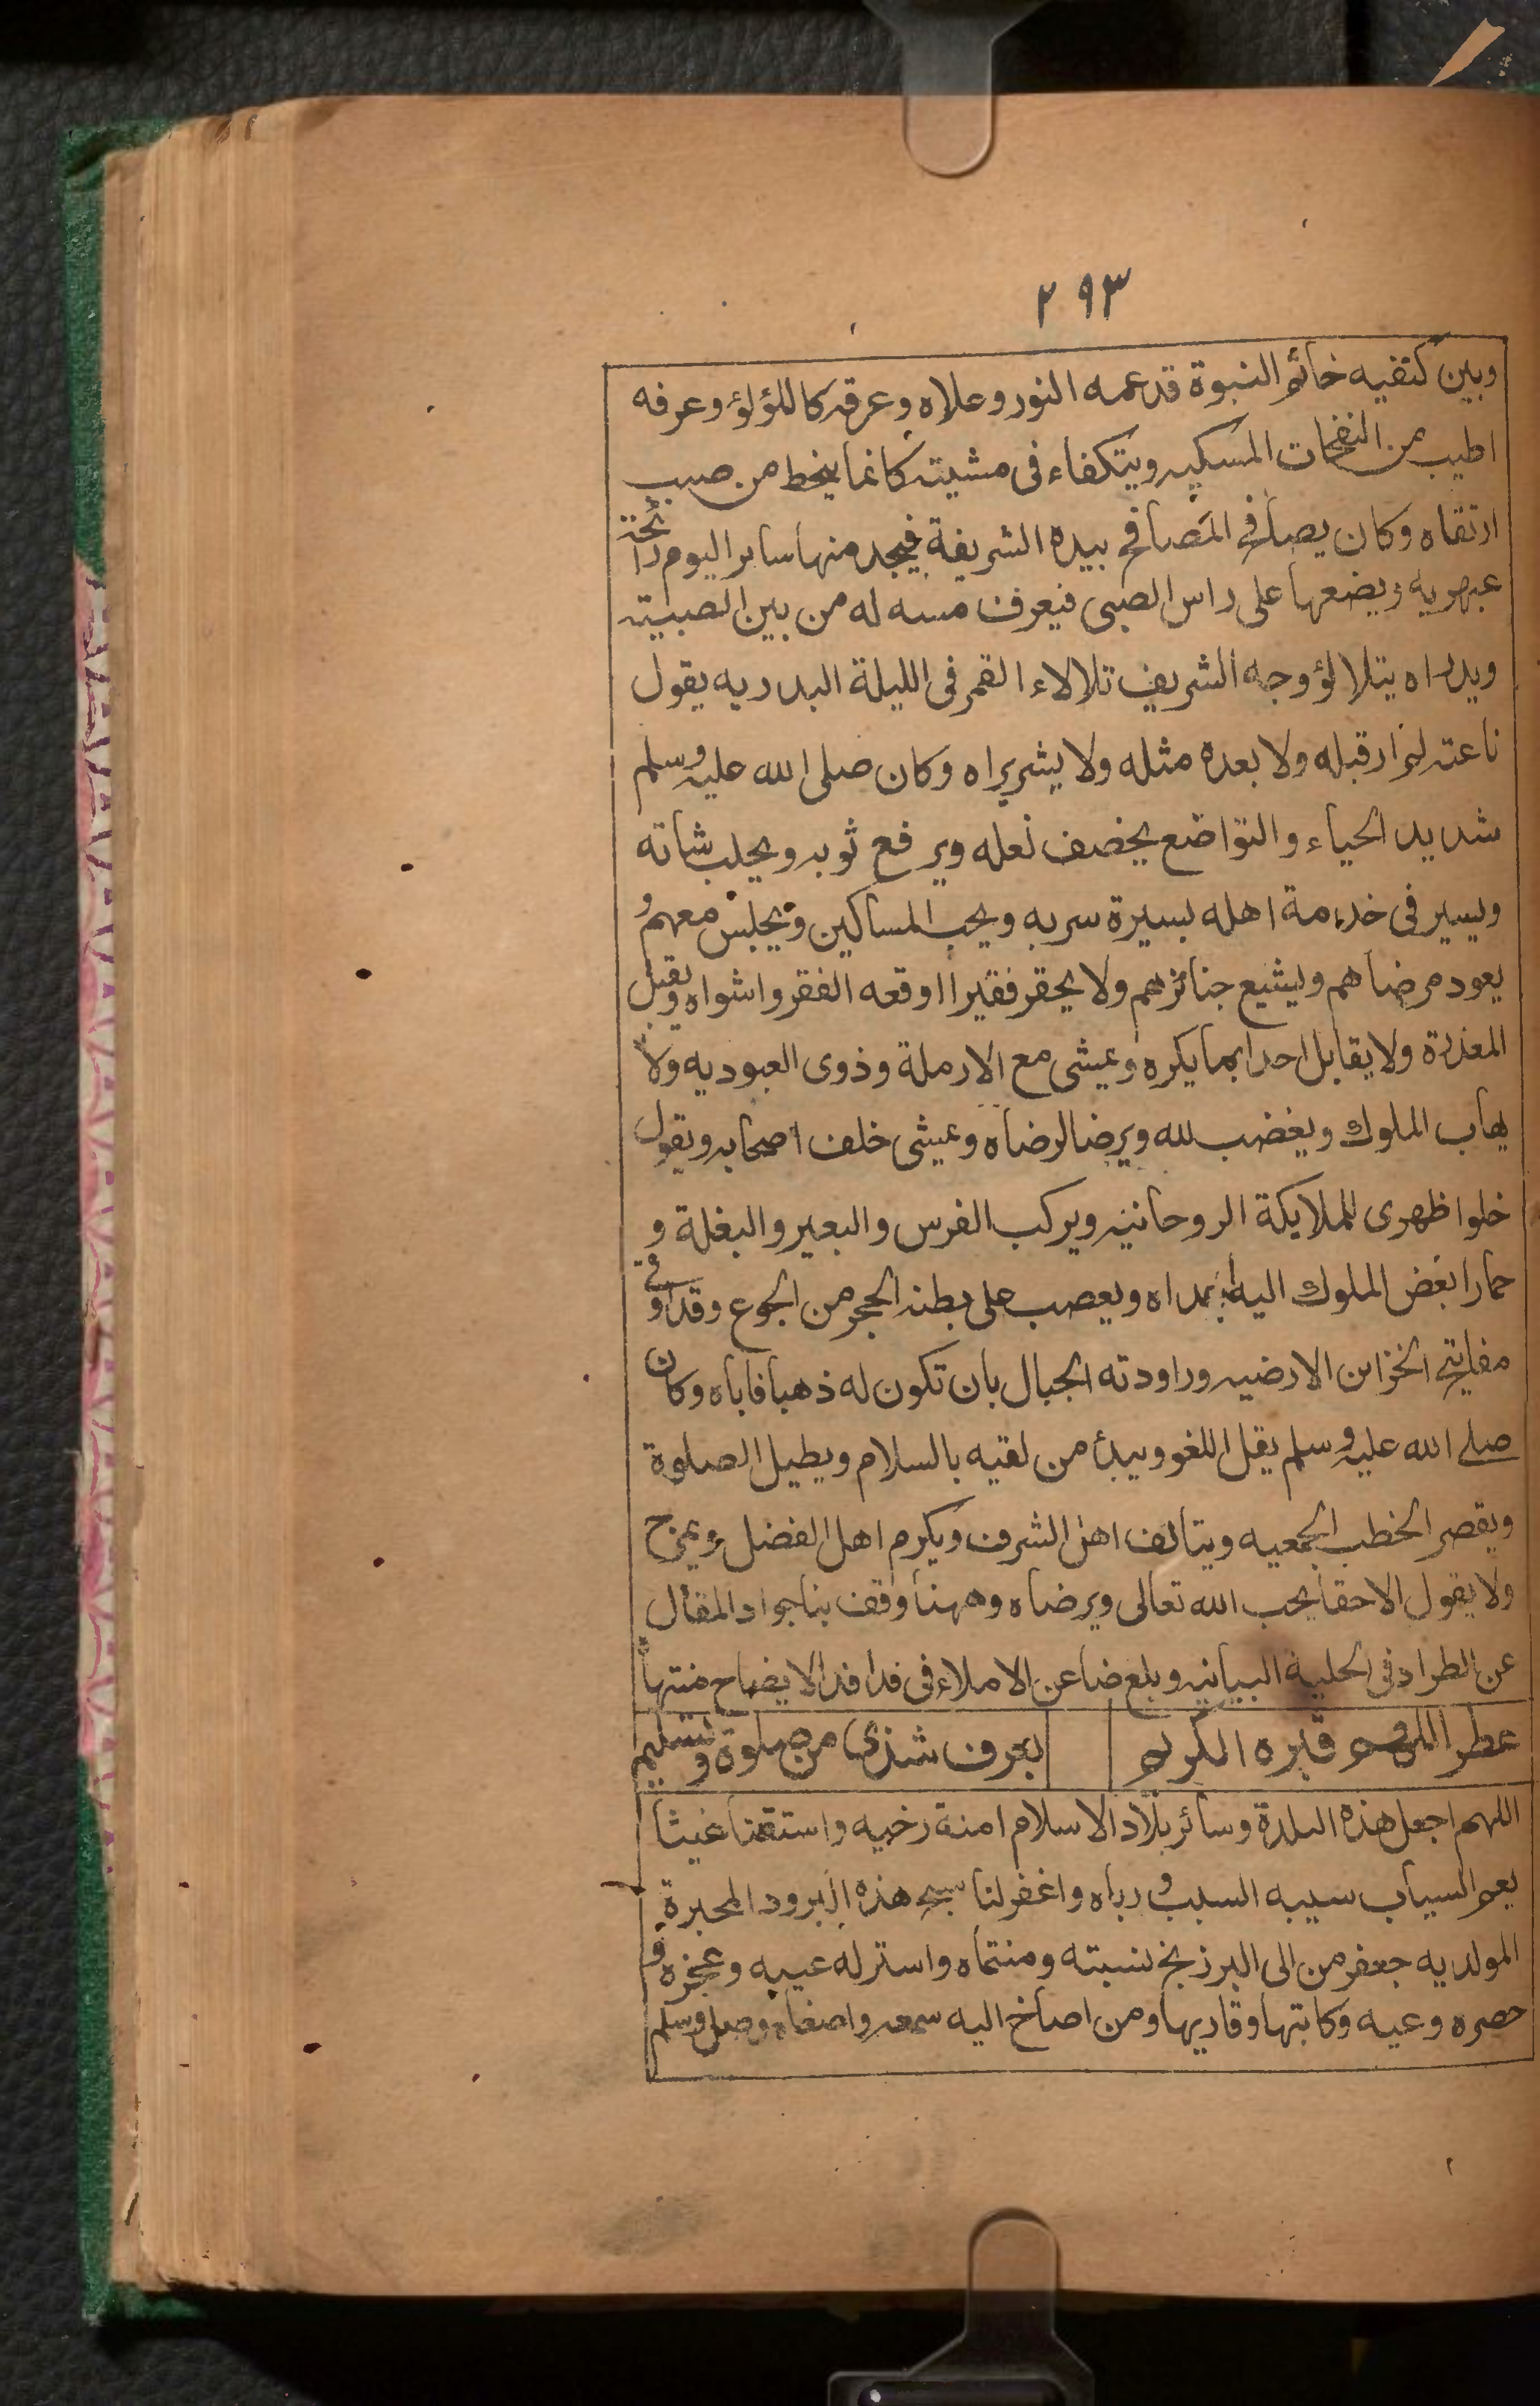 ٢٩٣
وبين كتفيه خاتم النبوة قد عمه النور وعلاه وعرقه كاللؤلؤ وعرفه
اطيب من النفحات المسكيه ويتكفاء فى مشيته كانما ينحط من صبب
ارتقاه وكان يصافح المصافح بيده الشريفة فيجد منها ساير اليوم رائحة
عبهريه ويضعها على راس الصبى فيعرف مسه له من بين الصبيته
ويدراه يتلالؤ وجه الشريف تلالاء القمر فى الليلة البدريه يقول
ناعته لم ار قبله ولا بعده مثله ولا بشر يراه وكان صلى الله عليه وسلم
شديد الحياء والتواضع يخصف نعله ويرفع ثوبه ويحلب شاته
ويسير فى خدمة اهله بسيرة سريه ويحب المساكين ويجلس معهم و
يعود مرضاهم ويشيع جنائزهم ولا يحقر فقيرا اوقعه الفقر واشواه ويقبل
المعذرة ولا يقابل احدا بما يكره ويمشى مع الارملة وذوى العبوديه ولا
يهاب الملوك ويغضب لله ويرضا لرضاه ويمشى خلف اصحابه ويقول
خلوا ظهرى للملايكة الروحانيه ويركب الفرس والبعير والبغلة و
حمارا بعض الملوك اليه اهداه ويعصب على بطنه الحجر من الجوع وقد اوتى
مفاتيح الخزاين الارضيه وراودته الجبال بان تكون له ذهبا فاباه وكان
صلى الله عليه وسلم يقل اللغو ويبدأ من لقيه بالسلام ويطيل الصلوة
ويقصر الخطب الجمعيه ويتالف اهل الشرف ويكرم اهل الفضل ويمزح
ولا يقول الا حقا يحب الله تعالى ويرضاه وههنا وقف بنا جواد المقال
عن الطراد فى الحلية البيانيه وبلغ ضاعن الاملاء فى فدافد الايضاح منتهاه
عطر اللهم قبره الكريم بعرف شذى من صلوة وتسليم
اللهم اجعل هذه البلدة وسائر بلاد الاسلام امنة رخيه واستقنا غيثا
يعم السياب سيبه السبب ورباه واغفر لنا سج هذه البرود المحبرة
المولديه جعفر من الى البرزنج نسبته ومنتماه واستر له عيبه وعجزه و
حصره وعيه وكاتبها وقاريها ومن اصاخ اليه سمعه واصغاه وصل وسلم